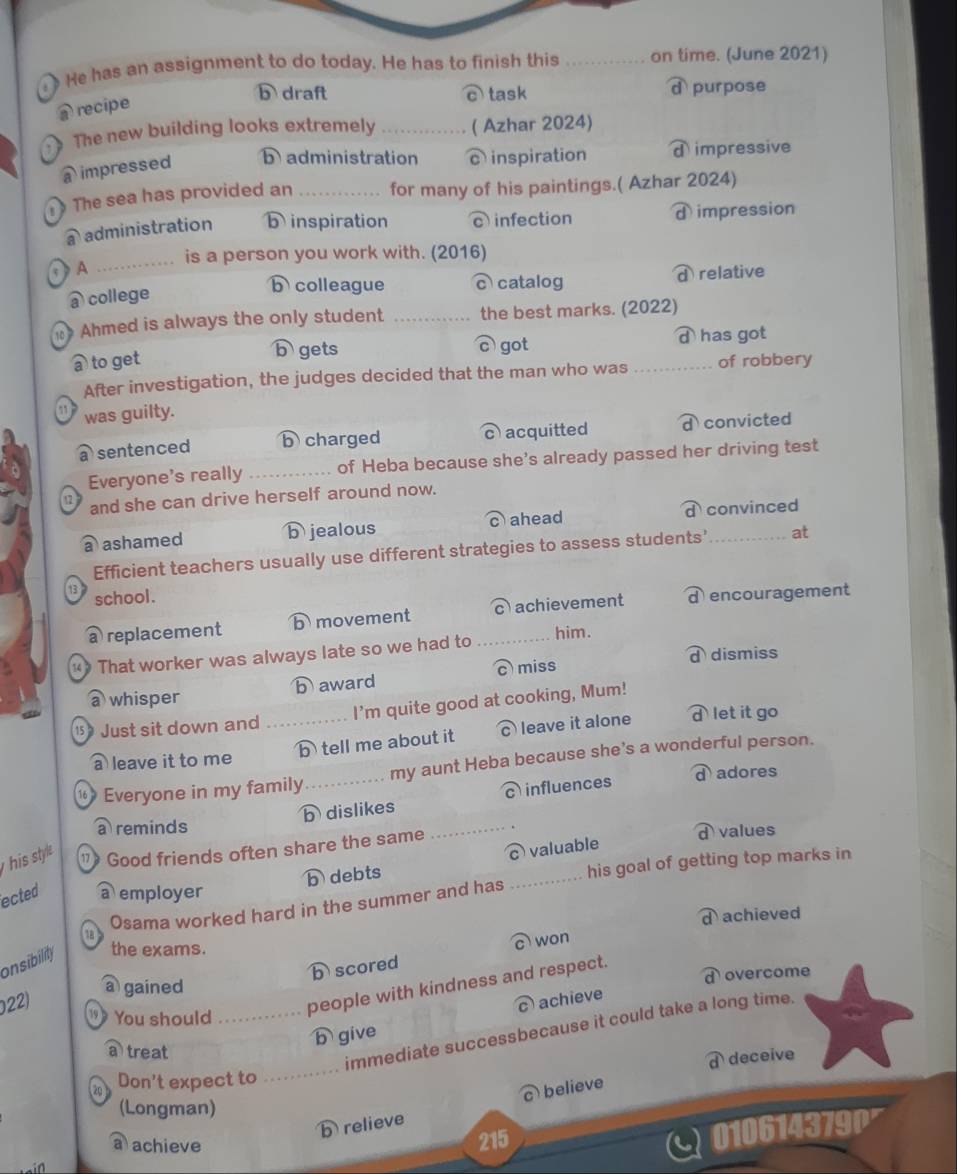 6 He has an assignment to do today. He has to finish this ............ on time. (June 2021)
a recipe b draft c task d purpose
7 The new building looks extremely ............. ( Azhar 2024)
a impressed b administration c inspiration d impressive
8 The sea has provided an ............ for many of his paintings.( Azhar 2024)
a administration b inspiration c infection d impression
9 A ............ is a person you work with. (2016)
a college b colleague c catalog d relative
10 Ahmed is always the only student ............ the best marks. (2022)
a to get b gets c got d has got
After investigation, the judges decided that the man who was ............ of robbery
11 was guilty.
a sentenced b charged c acquitted d convicted
Everyone's really ............ of Heba because she's already passed her driving test
12 and she can drive herself around now.
a ashamed b jealous c ahead d convinced
Efficient teachers usually use different strategies to assess students'............ at
13 school.
a replacement b movement c achievement d encouragement
14 That worker was always late so we had to ............ him.
a whisper b award c miss d dismiss
15 Just sit down and ............. I'm quite good at cooking, Mum!
a leave it to me b tell me about it c leave it alone d let it go
16 Everyone in my family............. my aunt Heba because she's a wonderful person.
a reminds b dislikes c influences d adores
17 Good friends often share the same ............ .
a employer b debts c valuable d values
18 Osama worked hard in the summer and has ............ his goal of getting top marks in
the exams.
a gained b scored c won d achieved
19 You should ............. people with kindness and respect.
a treat b give c achieve d overcome
20 Don't expect to ............ immediate successbecause it could take a long time.
(Longman)
a achieve b relieve c believe d deceive
215
his style
ected
onsibility
022)
0106143790